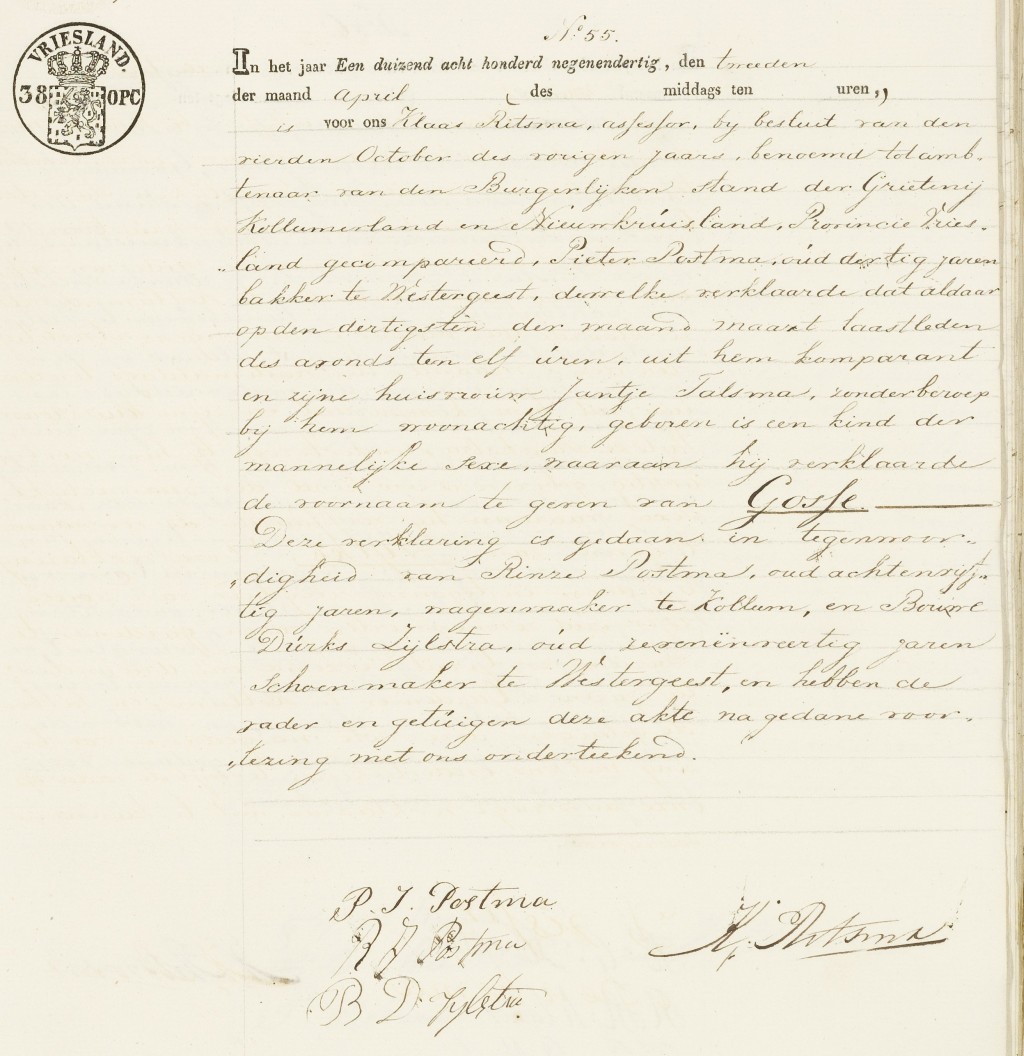 VRIESLAND.
38 OPC
No. 55.
In het jaar Een duizend acht honderd negenendertig, den tweeden
der maand April des middags ten uren,,
is voor ons Klaas Ritsma, assessor, by besluit van den
vierden October des vorigen jaars, benoemd tot amb-
tenaar van den Burgerlijken stand der Grietenij
Kollumerland en Nieuwkruisland, Provincie Vries-
„land gecompareerd, Pieter Postma, oúd dertig jaren
bakker te Westergeest, dewelke verklaarde dat aldaar
op den dertigsten der maand maart laastleden
des avonds ten elf úren, uit hem komparant
en zijne huisvrouw Jantje Talsma, zonder beroep
bij hem woonachtig, geboren is een kind der
mannelijke sexe, waaraan hij verklaarde
de voornaam te geven van Gosse.
Deze verklaring is gedaan in tegenwoor-
„digheid van Rinze Postma, oud achtenvijf-
tig jaren, wagenmaker te Kollum, en Bouwe
Dúrks Zijlstra, oúd zevenënveertig jaren
schoenmaker te Westergeest, en hebben de
vader en getúigen deze akte na gedane voor-
„lezing met ons onderteekend.
P. J. Postma
R J Postma
K. Ritsma
B D Zylstra